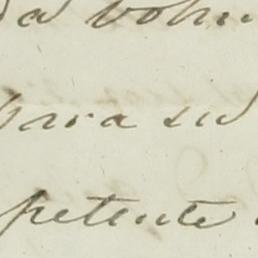 da volun
para su
petente